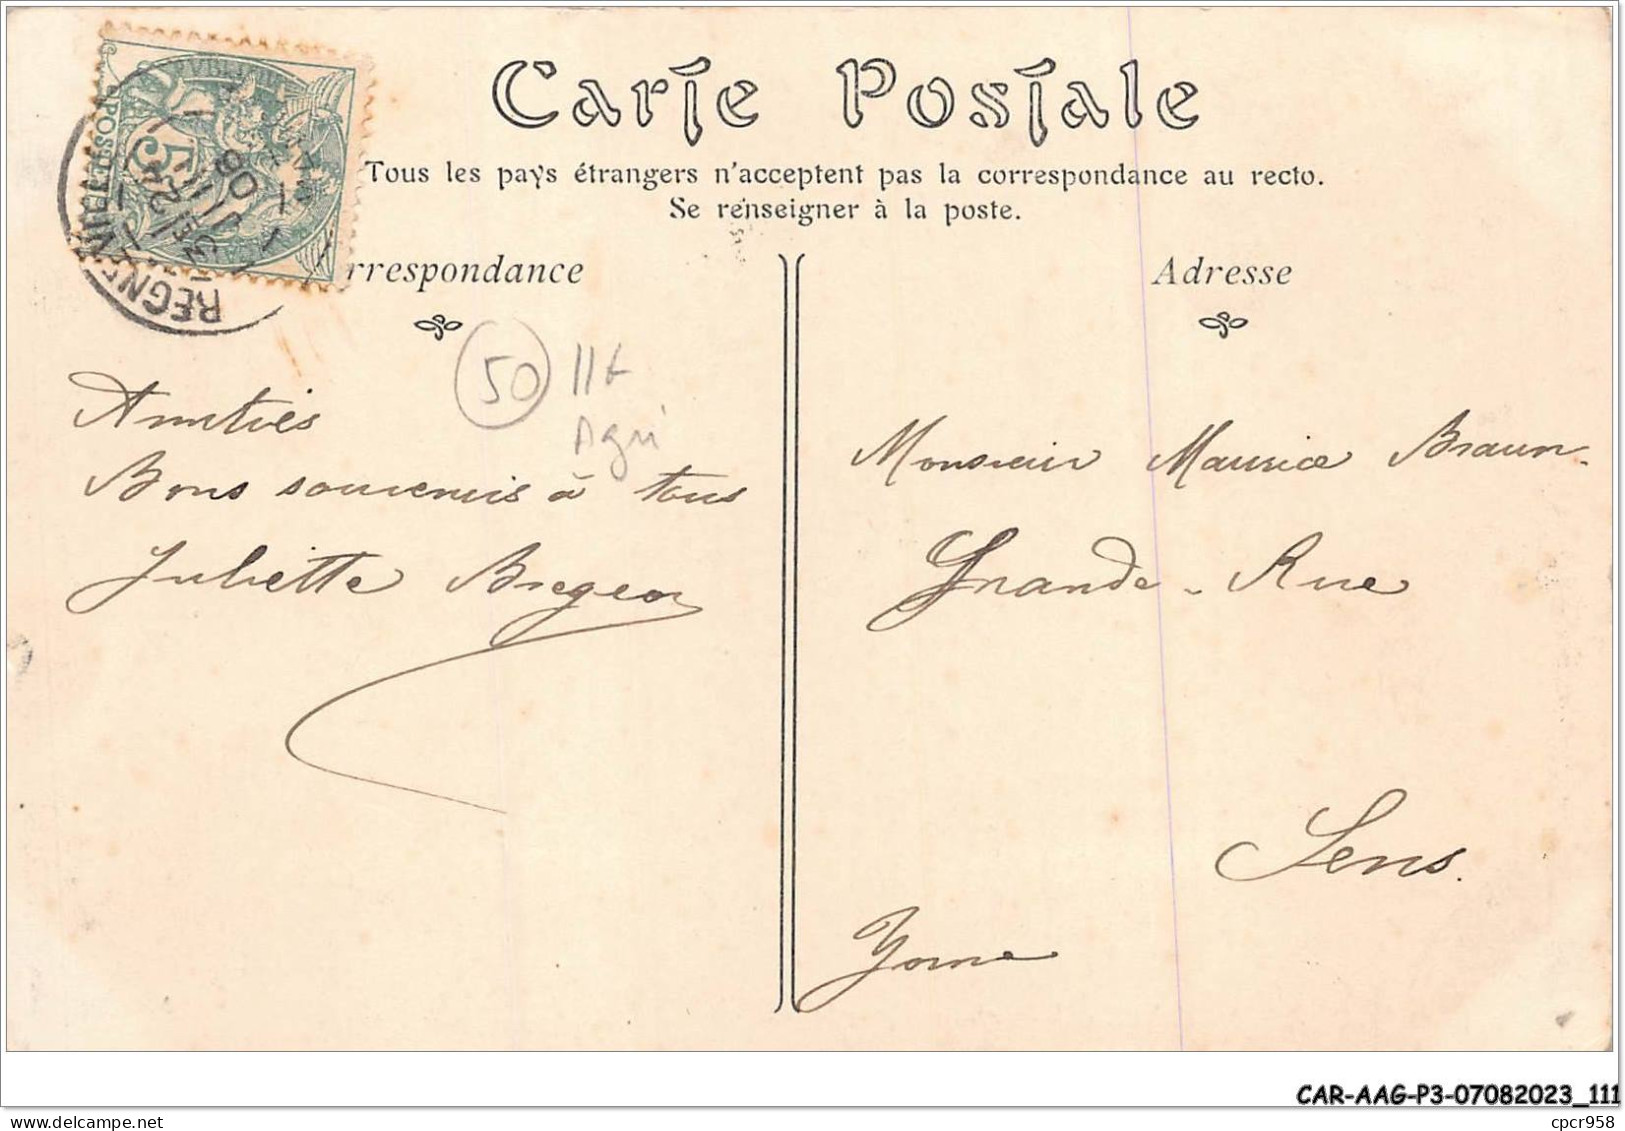 Carte Postale
Tous les pays étrangers n'acceptent pas la correspondance au recto.
Se renseigner à la poste.
rrespondance
Adresse
REGNEVILLE
5
POSTES
50
117
Agri
Amitiés
Bons souvenirs à tous
Juliette
Monsieur Maurice Braun
Grande-Rue
Sens.
Yonne
CAR-AAG-P3-07082023_111
cpcr958